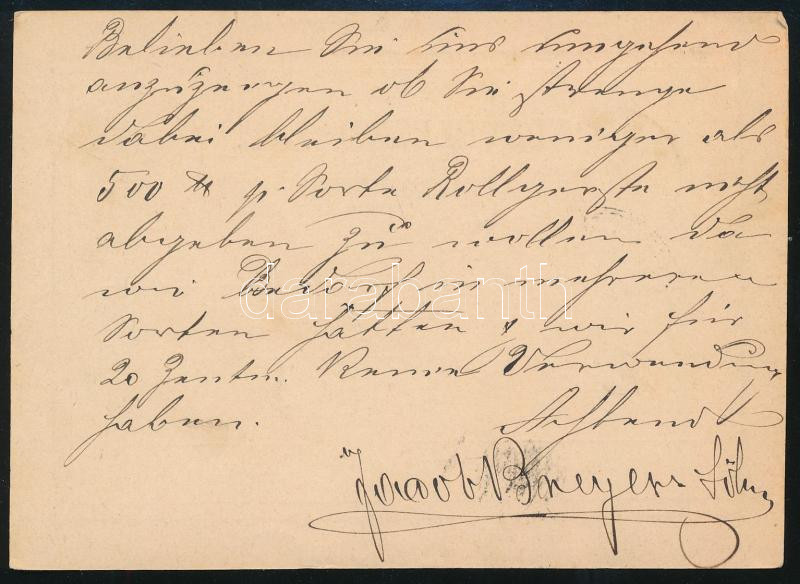 Belieben Sie uns umgehend
anzuzeigen ob Sie strenge
dabei bleiben weniger als
500 ℔ p. Sorte Rollgerste nicht
abgeben zu wollen da
wir Bedarf in mehreren
Sorten hätten & wir für
20 Zentn. keine Verwendung
haben. Achtend
Jacob Breyers Söhne
darabanth